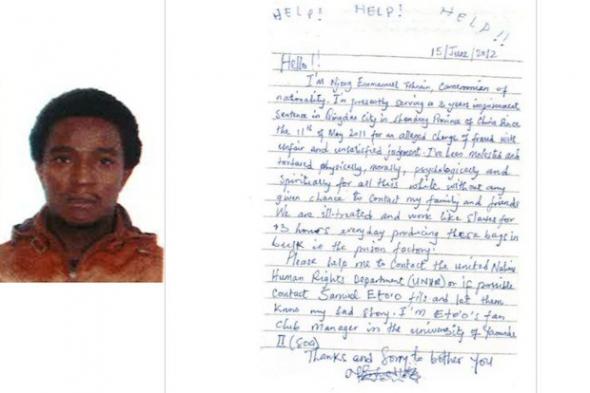 HELP! HELP! HELP!!
15/June/2012
Hello!!
I'm Njong Emmanuel Tohnain, Cameroonian of
nationality. I'm presently serving a 3 years imprisonment
sentence in Qingdao City in Shandong Province of China since
the 11th of May 2011 for an alleged charge of fraud with
unfair and unsatisfied judgment. I've been molested and
tortured physically, morally, psychologically and
spiritually for all this while without any
given chance to contact my family and friends
We are ill-treated and work like slaves for
13 hours everyday producing these bags in
bulk in the prison factory.
Please help me to contact the united Nations
Human Rights Department (UNHR) or if possible
contact Samuel Eto'o fils and let them
know my sad story. I'm Eto'o's fan
club manager in the university of Yaounde
II (soa)
Thanks and Sorry to bother you